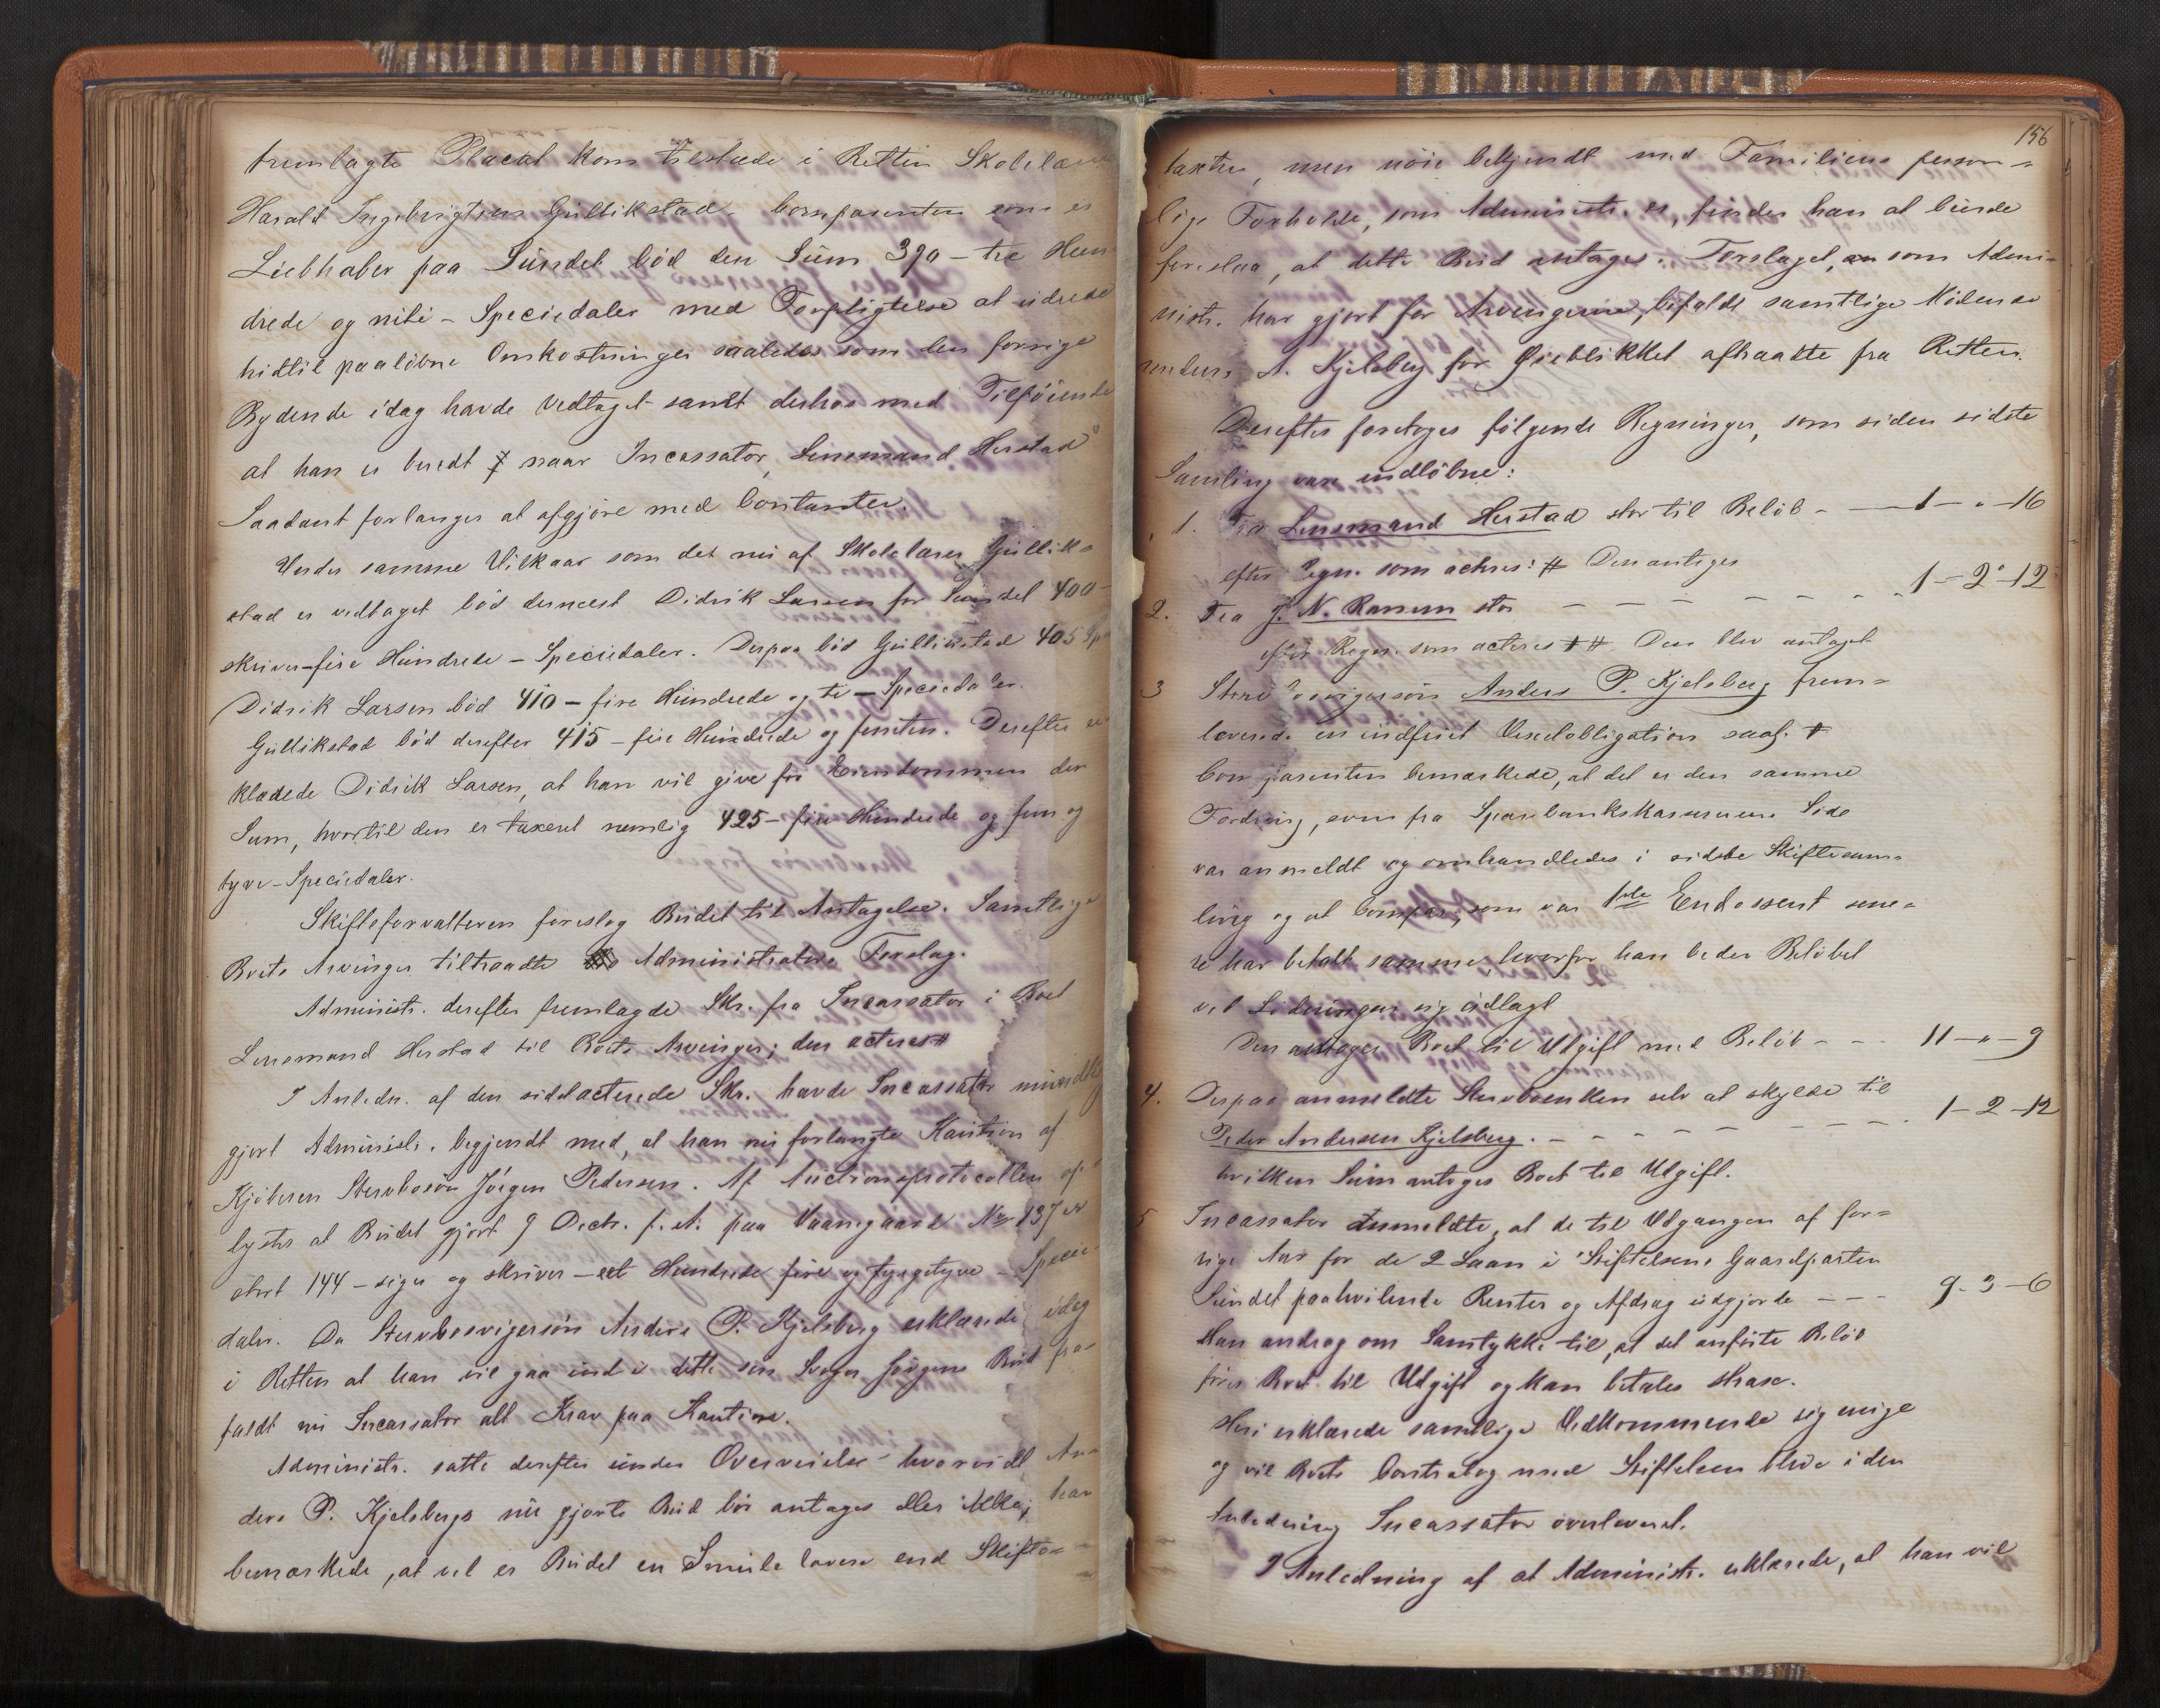 fremlagte Placat kom tilstæde i Retten Skolelærer
Harald Ingebrigtsen Gullikstad. Comparenten som er
Liebhaber paa Sundet bød den Sum 390 – tre Hun-
drede og niti – Speciedaler med Forpligtelse at udrede
hidtil paaløbne Omkostninger saaledes som den forrige
Bydende idag havde vedtaget samt derhos med Tilføiende
at han er beredt naar Incassator, Lensmand Herstad
Saadant forlanger at afgjøre med Contanter.
Under samme Vilkaar som det nu af Skolelærer Gullik-
stad er vedtaget bød dernæst Didrik Larsen for Sundet 400 –
skriver – fire Hundrede – Speciedaler. Derpaa bød Gullikstad 405 Spd
Didrik Larsen bød 410 – fire Hundrede og ti – Speciedaler.
Gullikstad bød derefter 415 – fire Hundrede og femten. Derefter er
klærede Didrik Larsen, at han vil give for Eiendommen den
Sum, hvortil den er taxeret nemlig 425 – fire Hundrede og fem og
tyve – Speciedaler.
Skifteforvalteren foreslog Budet til Antagelse. Samtlige
Boets Arvinger tiltraadte Administrators Forslag.
Administr. derefter fremlagde Skr. fra Incassator i Boet
Lensmand Herstad til Boets Arvinger; den acteres #
I Anledn. af den sidstacterede Skr. havde Incassator mundtlig
gjort Administr. begjendt med, at han nu forlangte Kaution af
Kjøberen Stervbosøn Jørgen Pedersen. Af Auctionsprotocollen op-
lystes at Budet gjort 9 Decbr. f. A. paa Vaaningaard No 137 er
stort 144 – siger og skriver – et Hundrede fire og fyrgetyve – Specie-
daler. Da Stervbosvigersøn Anders P. Kjelsberg erklærede idag
i Retten at han vil gaa ind i dette sin Svoger Jørgens Bud fra-
faldt nu Incassator alt Krav paa Kaution.
Administr. satte derefter under Overveielse hvorvidt An-
ders P. Kjelsbergs nu gjorte Bud bør antages eller ikke; han
bemærkede, at vel er Budet en Smule lavere end Skifte-
156
taxten, men nøie bekjendt med Familiens person-
lige Forholde, som Administr. er, finder han at burde
foreslaa, at dette Bud antages. Forslaget, som Admi-
nistr. har gjort for Arvingerne, bifaldt samtlige Mødende
undens A. Kjelsberg for Øieblikket aftraadte fra Retten.
Derefter foretoges følgende Regninger, som siden sidste
Samling vare indløbne:
1. Fra Lensmand Herstad stor til Beløb – 1 – " – 16
efter Regn. som acteres: # Den antoges
2. Fra J. N. stor – – – 1 – 2 – 12
efter Regn. som acteres ## Den blev antaget
3 Stervbosvigersøn Anders P. Kjelsberg frem-
leverede en indfriet Vexelobligation saal. #
Comparenten bemærkede, at det er den samme
Fordring, som fra Sparebankskassererens Side
var anmeldt og omhandledes i sidste Skiftesam-
ling og at Compar., som var 1ste Endossent sene-
re har betalt samme, hvorfor han beder Beløbet
ved Lodningen sig udlagt
Den antoges Boet til Udgift med Beløb – – – 11 – " – 9
4. Derpaa anmeldte Stervboenken selv at skylde til
Peder Andersen Kjelsberg. – – – 1 – 2 – 12
hvilken Sum antoges Boet til Udgift.
5 Incassator anmeldte, at de til Udgangen af for-
rige Aar for de 2 Laan i Stiftelsens Gaardparten
Sundet paahvilende Renter og Afdrag udgjorde – – – 9 – 3 – 6
Han androg om Samtykke til, at det anførte Beløb
føres Boet til Udgift og kan betales strax.
Heri erklærede samtlige Vedkommende sig enige
og vil Boets Contrabog med Stiftelsen blive i den
Anledning Incassator overleveret.
I Anledning af at Administr. erklærede, at han vil